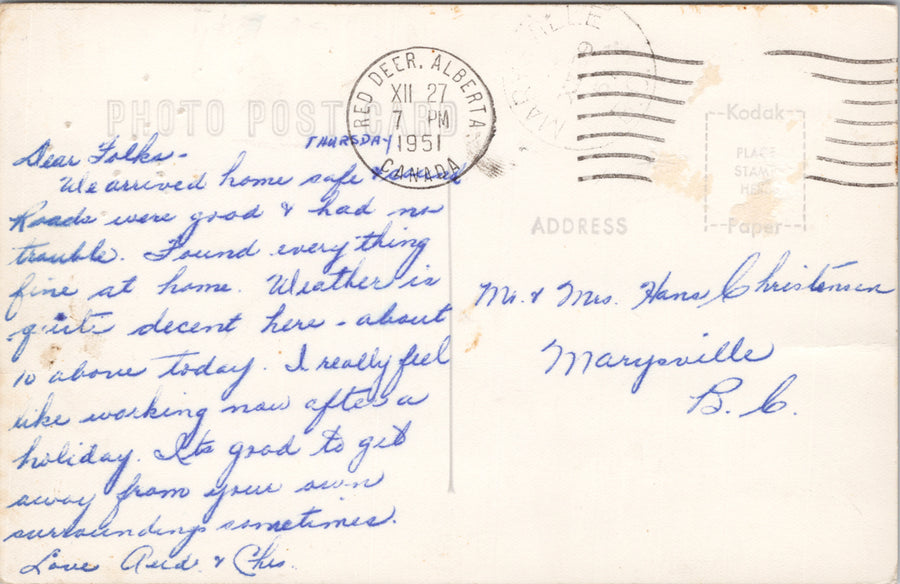 PHOTO POSTCARD
RED DEER, ALBERTA
XII 27
7 PM
1951
CANADA
THURSDAY
Dear Folks -
We arrived home safe & sound
Roads were good & had no
trouble. Found everything
fine at home. Weather is
quite decent here - about
10 above today. I really feel
like working now after a
holiday. Its good to get
away from your own
surroundings sometimes.
Love & Chis.
Kodak
PLACE
STAMP
HERE
Paper
ADDRESS
Mr. & Mrs. Hans Christensen
Marysville
B. C.